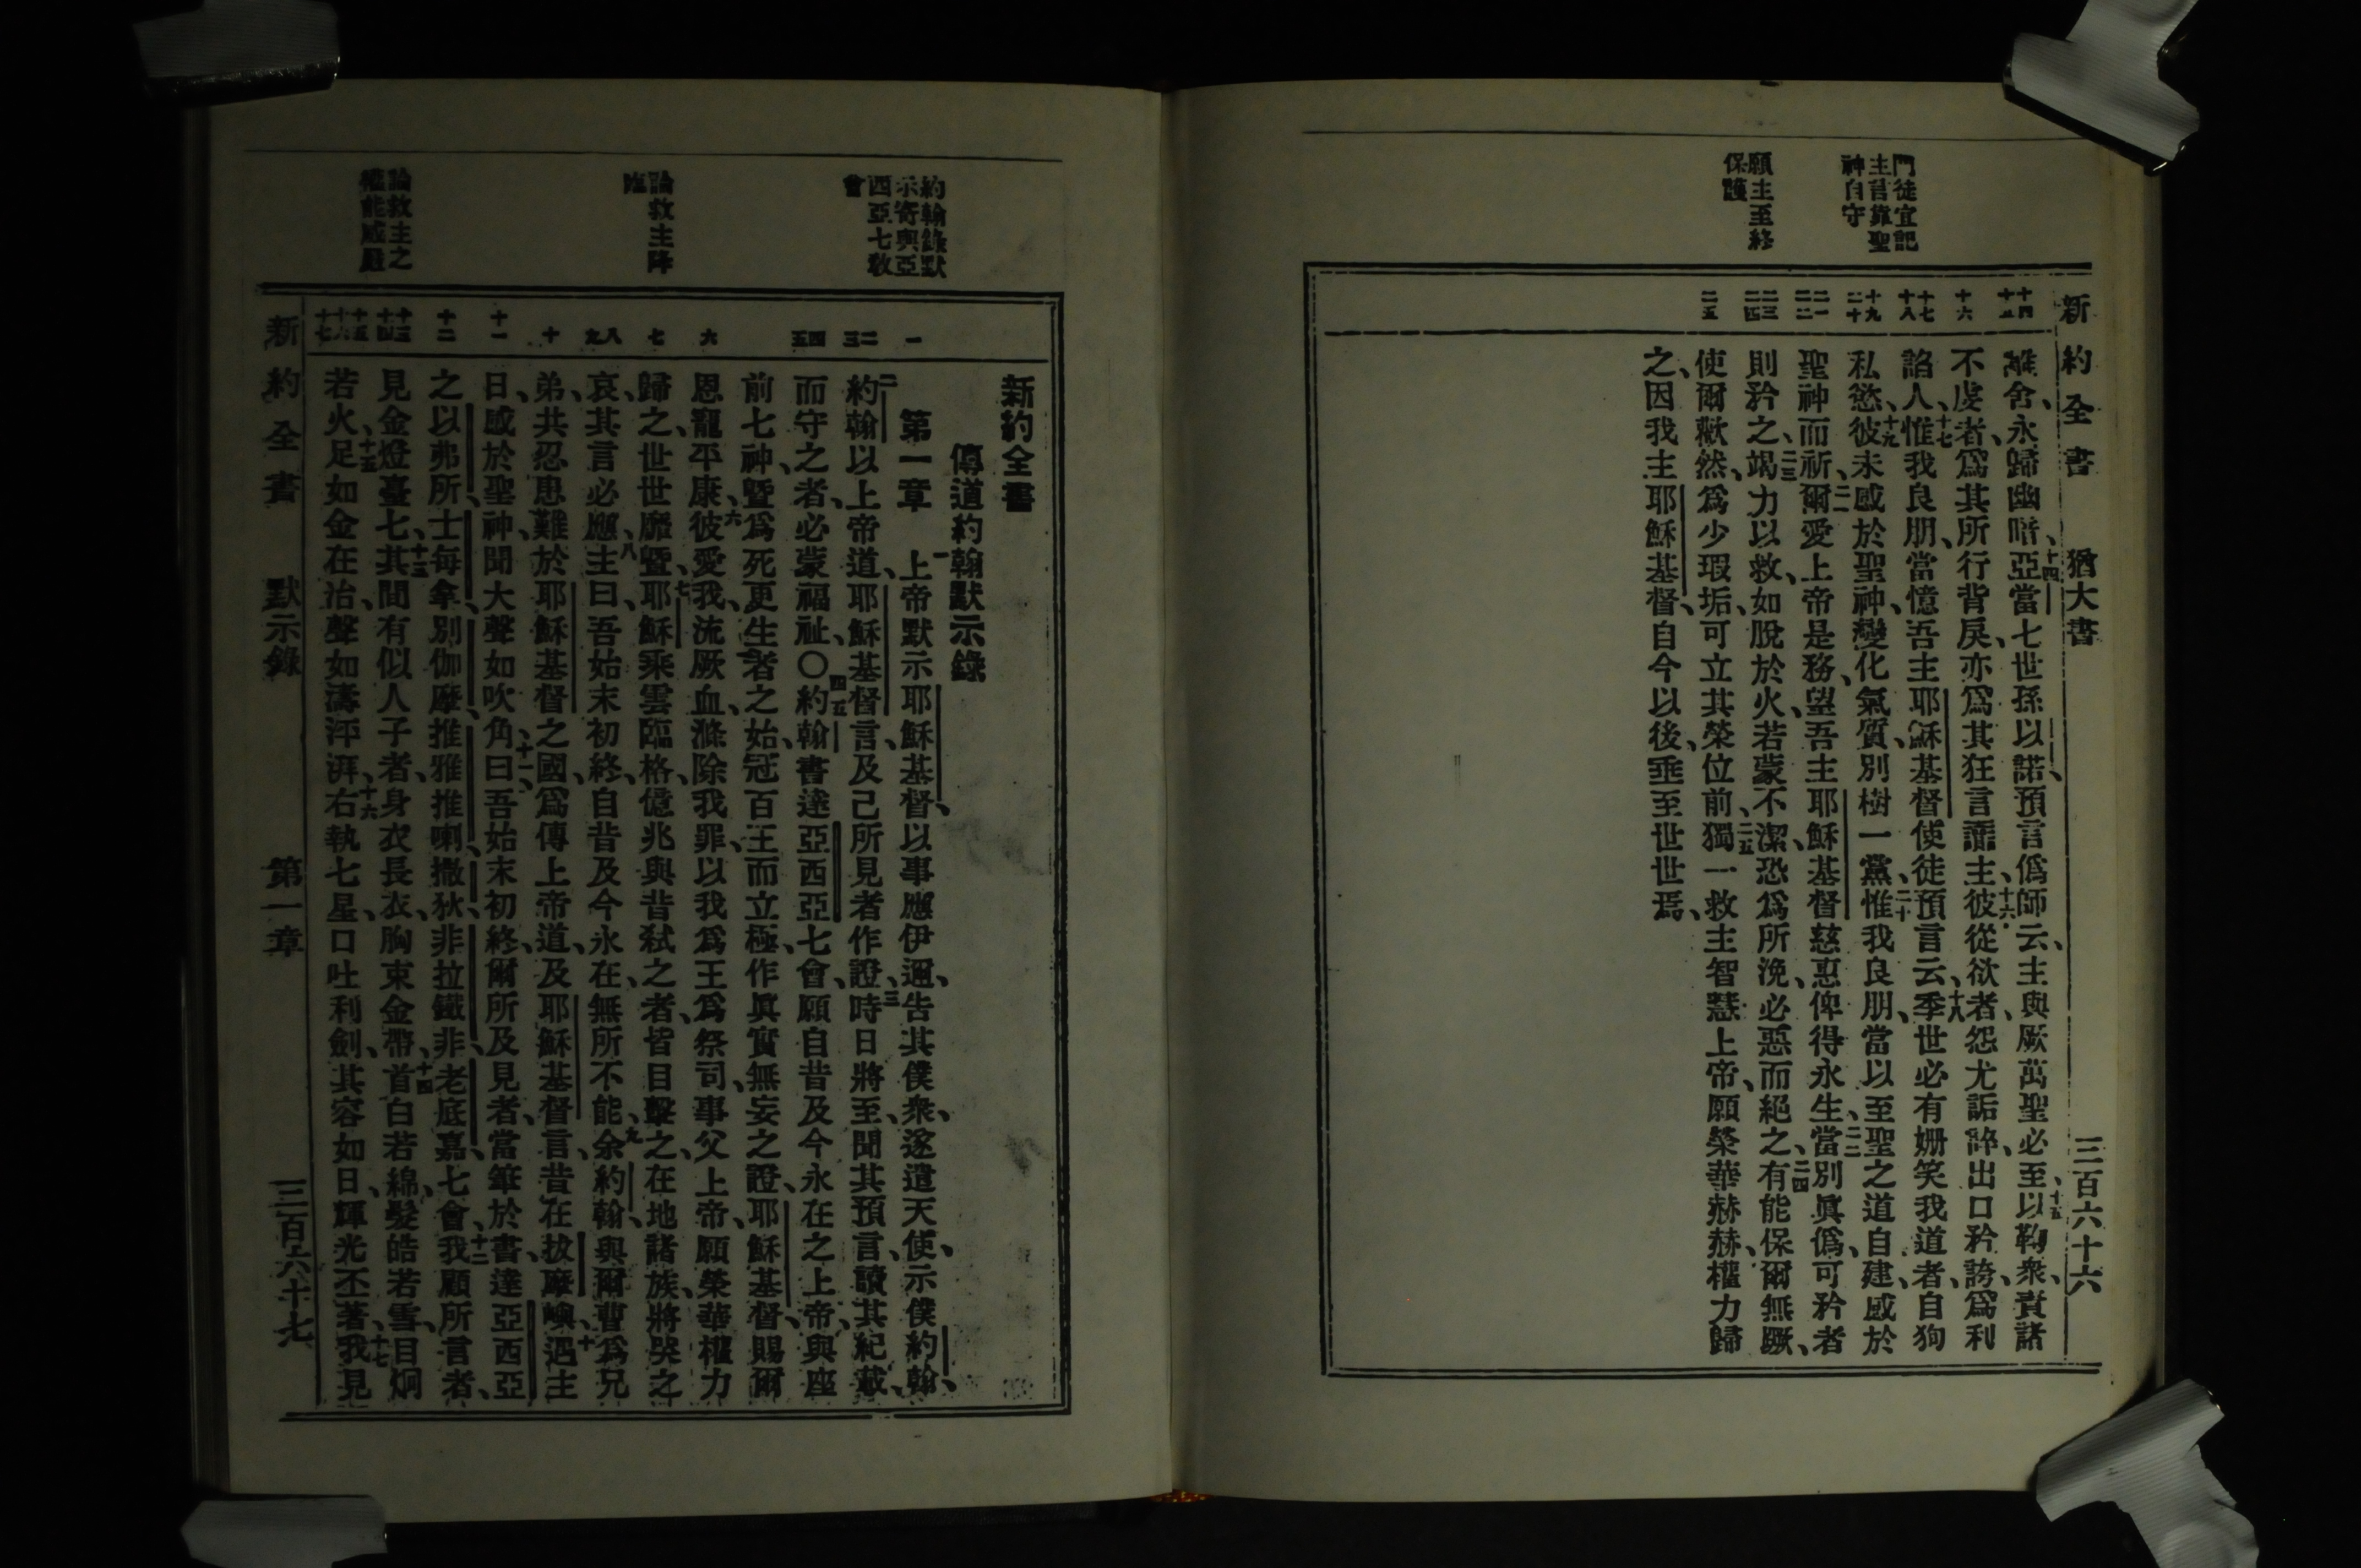 新約全書　猶大書　三百六十六
門徒宜記
主言靠聖
神自守
願主至終
保護
十四
十五
十六
十七
十八
十九
二十
二一
二二
二三
二四
二五
離舍、永歸幽暗、十四亞當七世孫以諾、預言僞師云、主與厥萬聖必至、十五以鞫衆、責諸
不虔者、爲其所行背戾、亦爲其狂言讟主、十六彼從欲者、怨尤詬誶、出口矜誇、爲利
諂人、十七惟我良朋、當憶吾主耶穌基督使徒預言云、十八季世必有姗笑我道者、自狥
私慾、十九彼未感於聖神、變化氣質、別樹一黨、二十惟我良朋、當以至聖之道自建、感於
聖神而祈、二一爾愛上帝是務、望吾主耶穌基督慈惠、俾得永生、二二當別眞僞、可矜者
則矜之、二三竭力以救、如脫於火、若蒙不潔、恐爲所浼、必惡而絕之、二四有能保爾無蹶、
使爾歡然、爲少瑕垢、可立其榮位前、二五獨一救主智慧上帝、願榮華赫赫、權力歸
之、因我主耶穌基督、自今以後、垂至世世焉、
約翰錄默
示寄與亞
西亞七敎
會
論救主降
臨
論救主之
權能威嚴
一
二
三
四
五
六
七
八
九
十
十一
十二
十三
十四
十五
十六
十七
新約全書
傳道約翰默示錄
第一章　一上帝默示耶穌基督、以事應伊邇、告其僕衆、遂遣天使、示僕約翰、
二約翰以上帝道、耶穌基督言、及己所見者作證、三時日將至、聞其預言、讀其紀載、
而守之者、必蒙福祉、〇四五約翰書達亞西亞七會、願自昔及今永在之上帝、與座
前七神、曁爲死更生者之始、冠百王而立極、作眞實無妄之證、耶穌基督、賜爾
恩寵平康、六彼愛我、流厥血、滌除我罪、以我爲王爲祭司、事父上帝、願榮華權力
歸之、世世靡曁、七耶穌乘雲臨格、億兆與昔弒之者、皆目擊之、在地諸族、將哭之
哀、其言必應、八主曰、吾始末初終、自昔及今永在、無所不能、九余約翰、與爾曹爲兄
弟、共忍患難、於耶穌基督之國、爲傳上帝道、及耶穌基督言、昔在拔摩嶼、十遇主
日、感於聖神、聞大聲如吹角、十一曰、吾始末初終、爾所及見者、當筆於書、達亞西亞
之以弗所、士每拿、別伽摩、推雅推喇、撒狄、非拉鐵非、老底嘉、七會、十二我顧所言者、
見金燈臺七、十三其間有似人子者、身衣長衣、胸束金帶、十四首白若綿、髮皓若雪、目炯
若火、十五足如金在冶、聲如濤泙湃、十六右執七星、口吐利劍、其容如日、輝光丕著、十七我見
新約全書　默示錄　第一章　三百六十七